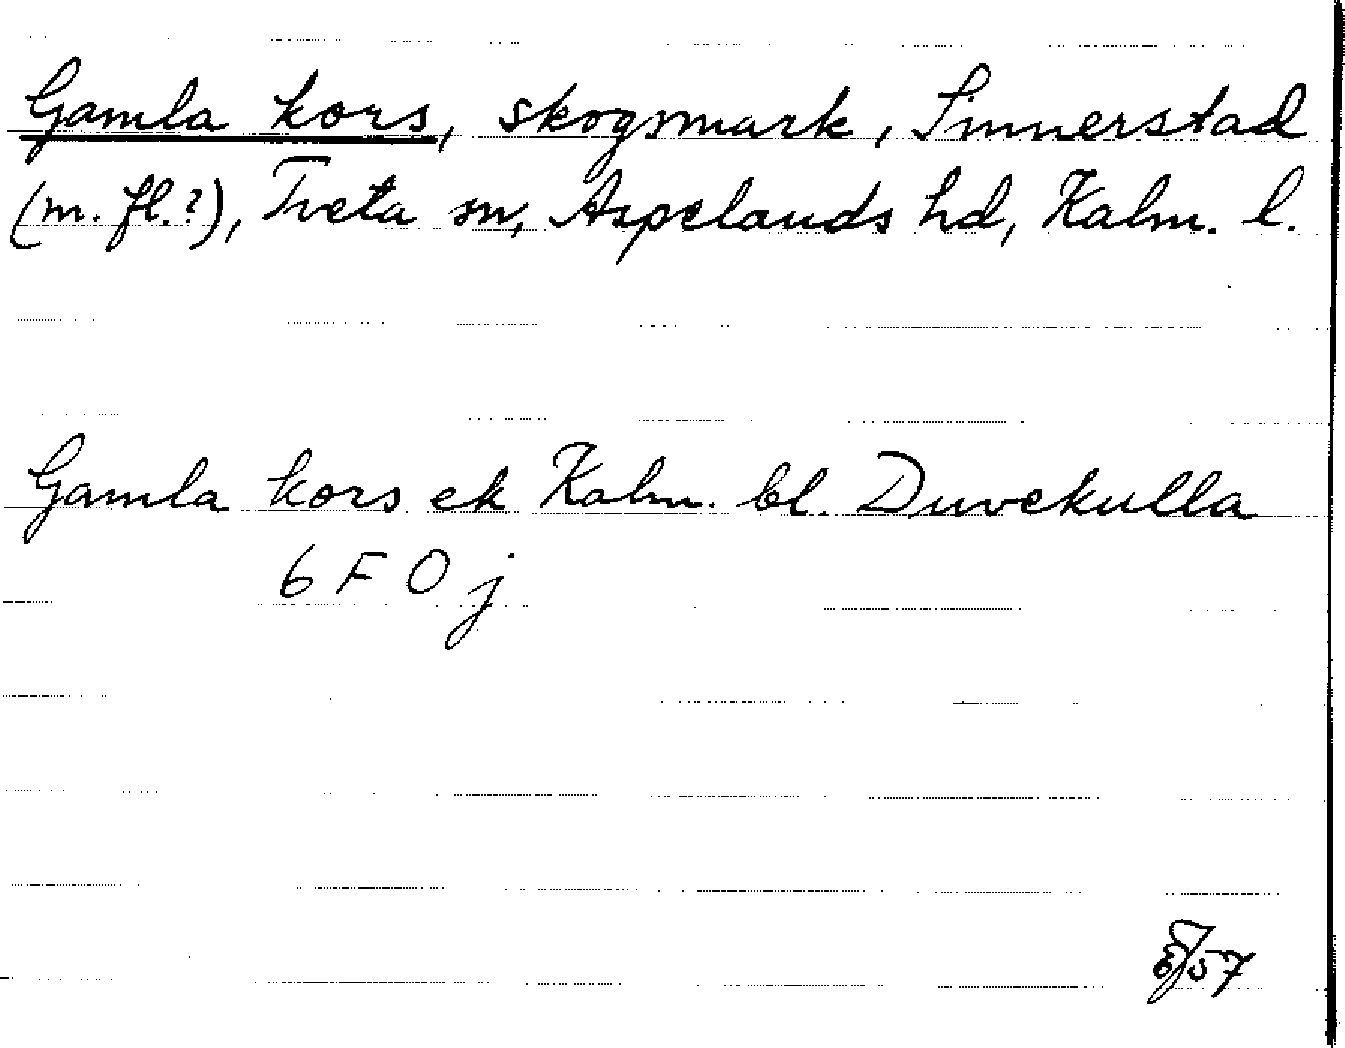 Gamla kors, skogsmark, Sinnerstad
(m. fl.?), Tveta sn, Aspelands hd, Kalm. l.
Gamla kors ek Kalm. bl. Duvekulla
6 F 0 j
57